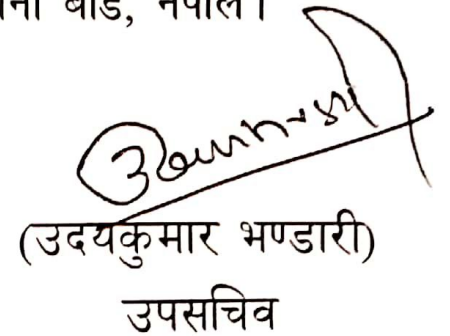 बोर्ड, नेपाल।
(उदयकुमार भण्डारी)
उपसचिव